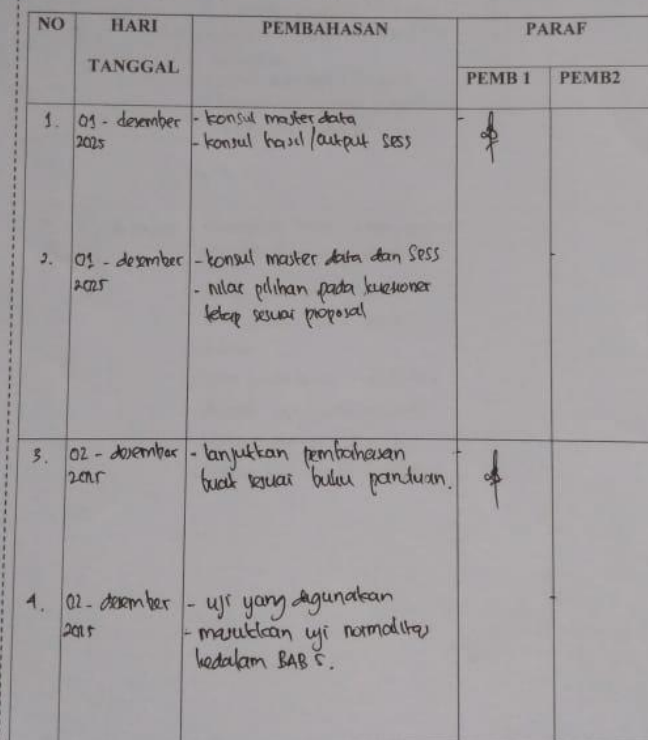 NO HARI TANGGAL PEMBAHASAN PARAF
PEMB 1 PEMB2
1. 01 - desember 2025
- konsul master data
- konsul hasil / output SPSS
2. 01 - desember 2025
- konsul master data dan SPSS
- nilai pilihan pada kuesioner
tetap sesuai proposal
3. 02 - desember 2025
- lanjutkan pembahasan
buat sesuai buku panduan.
4. 02 - desember 2025
- uji yang digunakan
- masukkan uji normalitas
kedalam BAB 5.